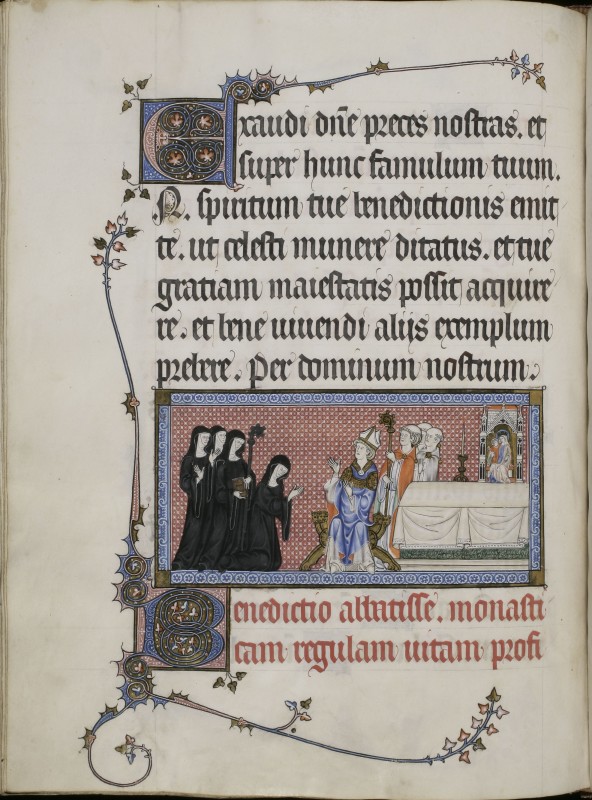 Exaudi dn̄e preces nostras. et
super hunc famulum tuum.
N. spiritum tue benedictionis emit
te. ut celesti munere ditatus. et tue
gratiam maiestatis possit acquire
re. et bene uiuendi alijs exemplum
prebere. Per dominum nostrum.
Benedictio abbatisse. monasti
cam regulam uitam profi